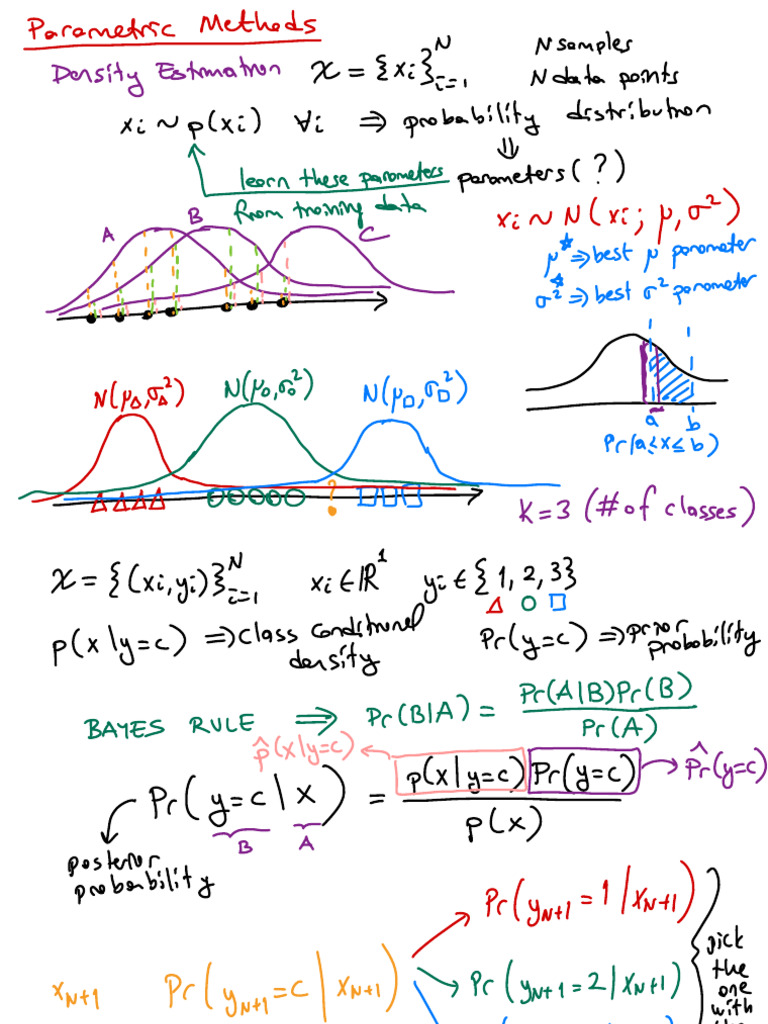 Parametric Methods
Density Estimation X = {xi}^N_{i=1} N samples
N data points
xi ~ p(xi) ∀i ⇒ probability distribution
⇓
learn these parameters parameters (?)
from training data
xi ~ N(xi; μ, σ²)
A B C
μ* ⇒ best μ parameter
σ²* ⇒ best σ² parameter
a b
Pr(a<x≤b)
N(μ△, σ²△) N(μ○, σ²○) N(μ□, σ²□)
?
K=3 (# of classes)
X = {(xi, yi)}^N_{i=1} xi ∈ ℝ^1 yi ∈ {1, 2, 3}
△ ○ □
p(x|y=c) ⇒ class conditional density Pr(y=c) ⇒ prior probability
BAYES RULE ⇒ Pr(B|A) = Pr(A|B)Pr(B) / Pr(A)
p̂(x|y=c) P̂r(y=c)
Pr(y=c|x) = p(x|y=c) Pr(y=c) / p(x)
B A
posterior
probability
Pr(y_{N+1} = 1 | x_{N+1})
x_{N+1} Pr(y_{N+1} = c | x_{N+1})
Pr(y_{N+1} = 2 | x_{N+1})
pick
the
one
with